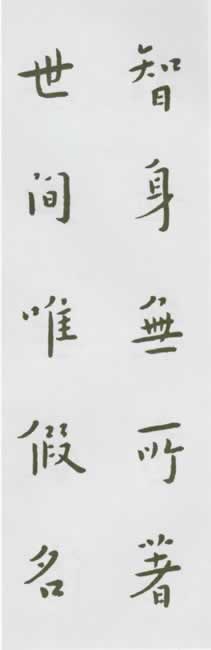 智身無所著
世間唯假名